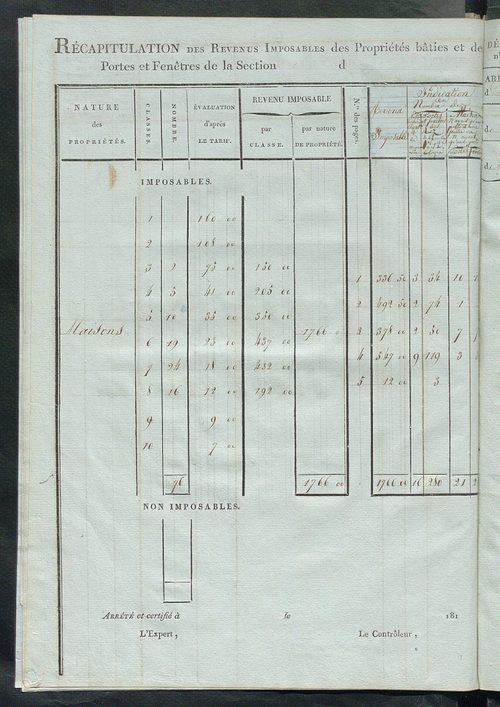 RÉCAPITULATION DES REVENUS IMPOSABLES des Propriétés bâties et de
Portes et Fenêtres de la Section d
NATURE des PROPRIÉTÉS.
CLASSES.
NOMBRE.
ÉVALUATION d'après LE TARIF.
REVENU IMPOSABLE
par CLASSE.
par nature DE PROPRIÉTÉ.
N.os des pages.
Revenu Imposable
Indication
IMPOSABLES.
1 160 00
2 108 00
3 2 75 00 150 00
1 336 50 3 54 10
4 5 41 00 205 00
2 492 50 2 74 1
5 10 35 00 350 00
Maisons 1766 0
3 378 00 2 30 7
6 19 23 00 437 00
4 547 00 9 119 3
7 24 18 00 432 00
5 12 00 3
8 16 12 00 192 00
9 9 00
10 7 00
76 1766 00 1766 00 16 280 21
NON IMPOSABLES.
ARRÊTÉ et certifié à le 181
L'Expert, Le Contrôleur,